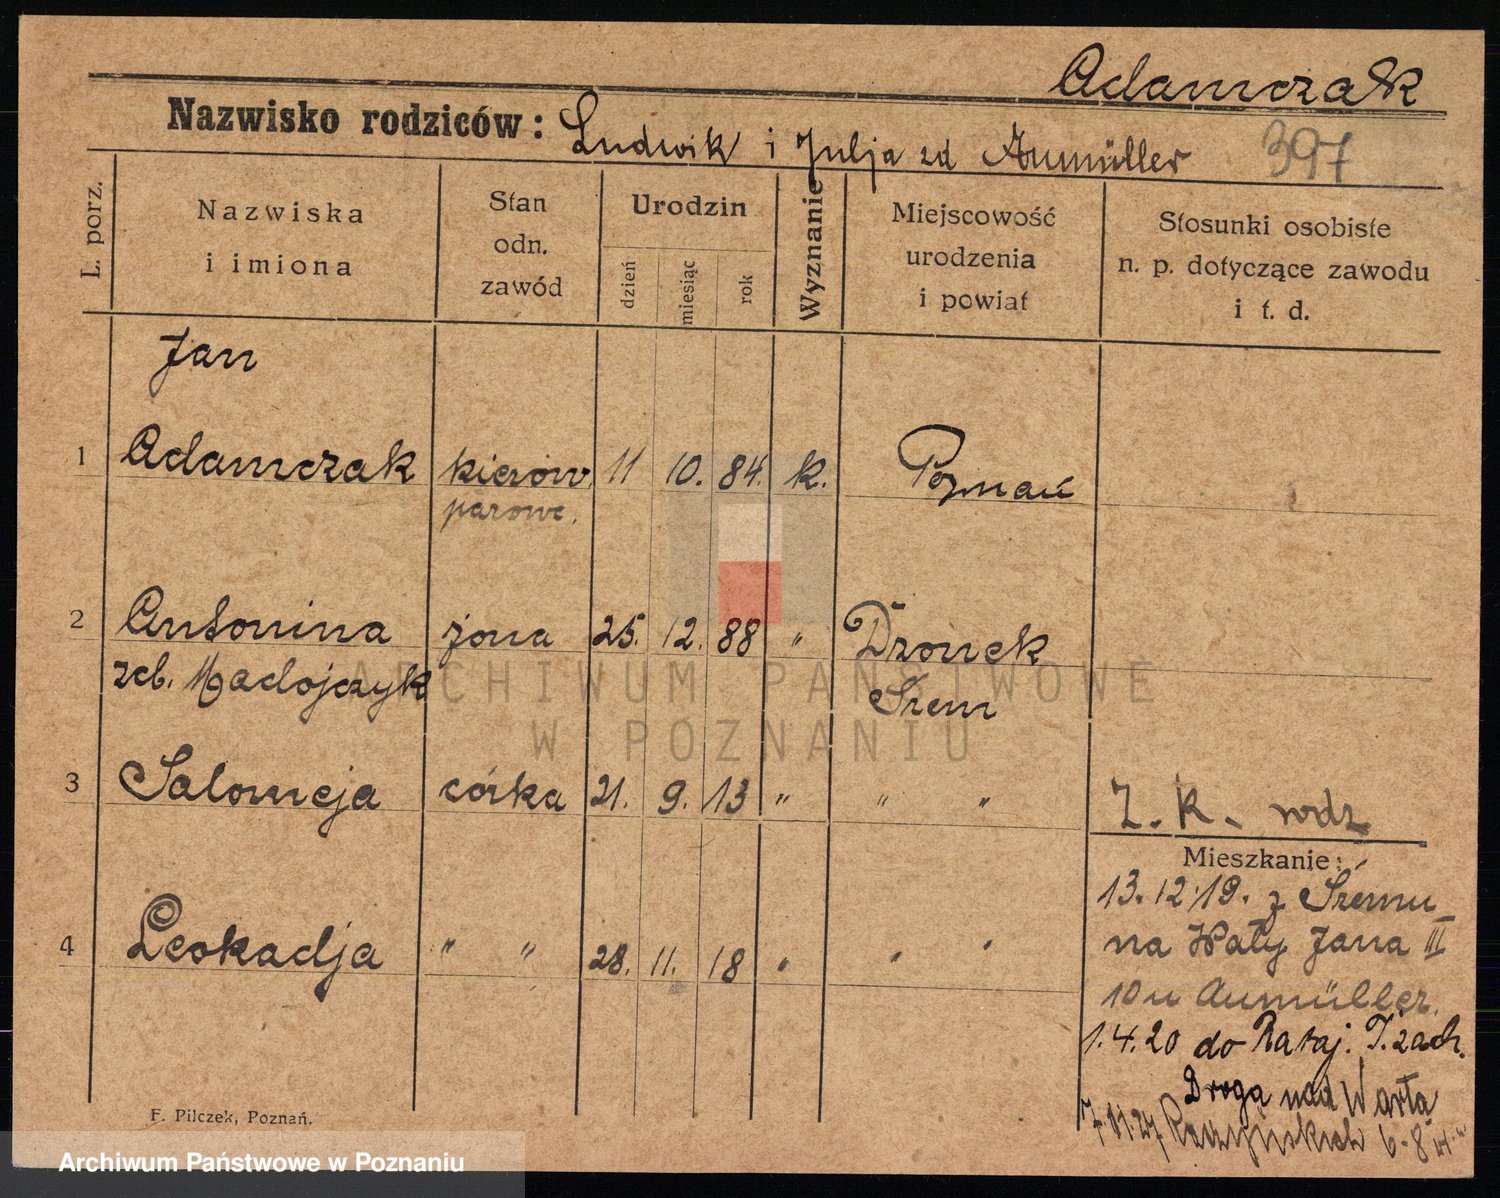 Adamczak
Nazwisko rodziców: Ludwik i Julja zd Aumüller 397
L. porz.
Nazwiska i imiona
Stan odn. zawód
Urodzin
dzień
miesiąc
rok
Wyznanie
Miejscowość urodzenia i powiat
Stosunki osobiste n. p. dotyczące zawodu i t. d.
Jan
1 Adamczak kierow. 11 10. 84. k. Poznań
parowe.
2 Antonina żona 25. 12. 88 " Dronek
zeb. Madojczyk Śrem
3 Salomeja córka 21. 9. 13 " " "
Z. K. rodz
Mieszkanie:
13.12.19. z Śremu
4 Leokadja " " 28. 11. 18 " " "
na Wały Jana III
10 u Aumüller.
1.4.20 do Rataj. T. zach.
Droga nad Wartą
7.11.27. 6-8
F. Pilczek, Poznań.
ARCHIWUM PAŃSTWOWE
W POZNANIU
Archiwum Państwowe w Poznaniu